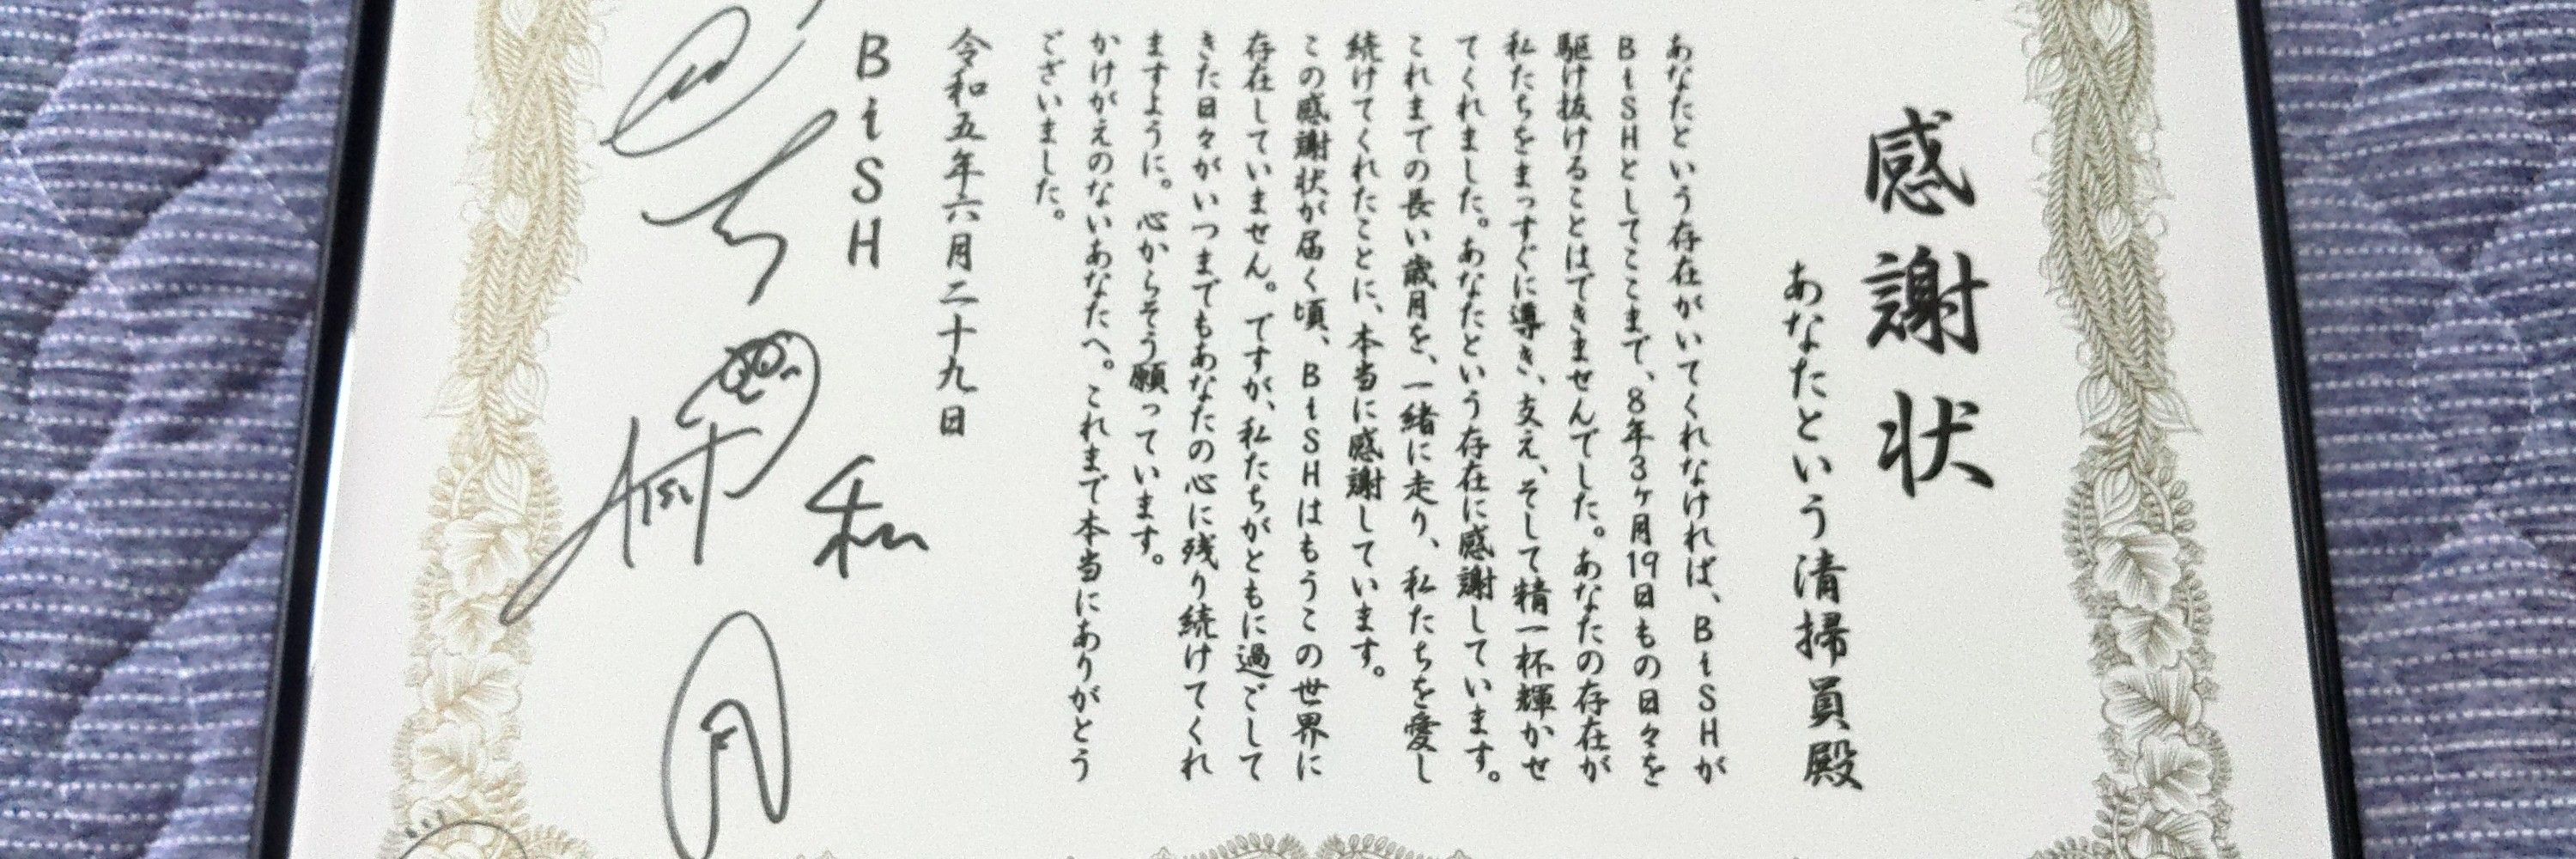 感謝状
あなたという清掃員殿
あなたという存在がいてくれなければ、BiSHが
BiSHとしてここまで、8年3ヶ月19日もの日々を
駆け抜けることはできませんでした。あなたの存在が
私たちをまっすぐに導き、支え、そして精一杯輝かせ
てくれました。あなたという存在に感謝しています。
これまでの長い歳月を、一緒に走り、私たちを愛し
続けてくれたことに、本当に感謝しています。
この感謝状が届く頃、BiSHはもうこの世界に
存在していません。ですが、私たちがともに過ごして
きた日々がいつまでもあなたの心に残り続けてくれ
ますように。心からそう願っています。
かけがえのないあなたへ。これまで本当にありがとう
ございました。
令和五年六月二十九日
BiSH